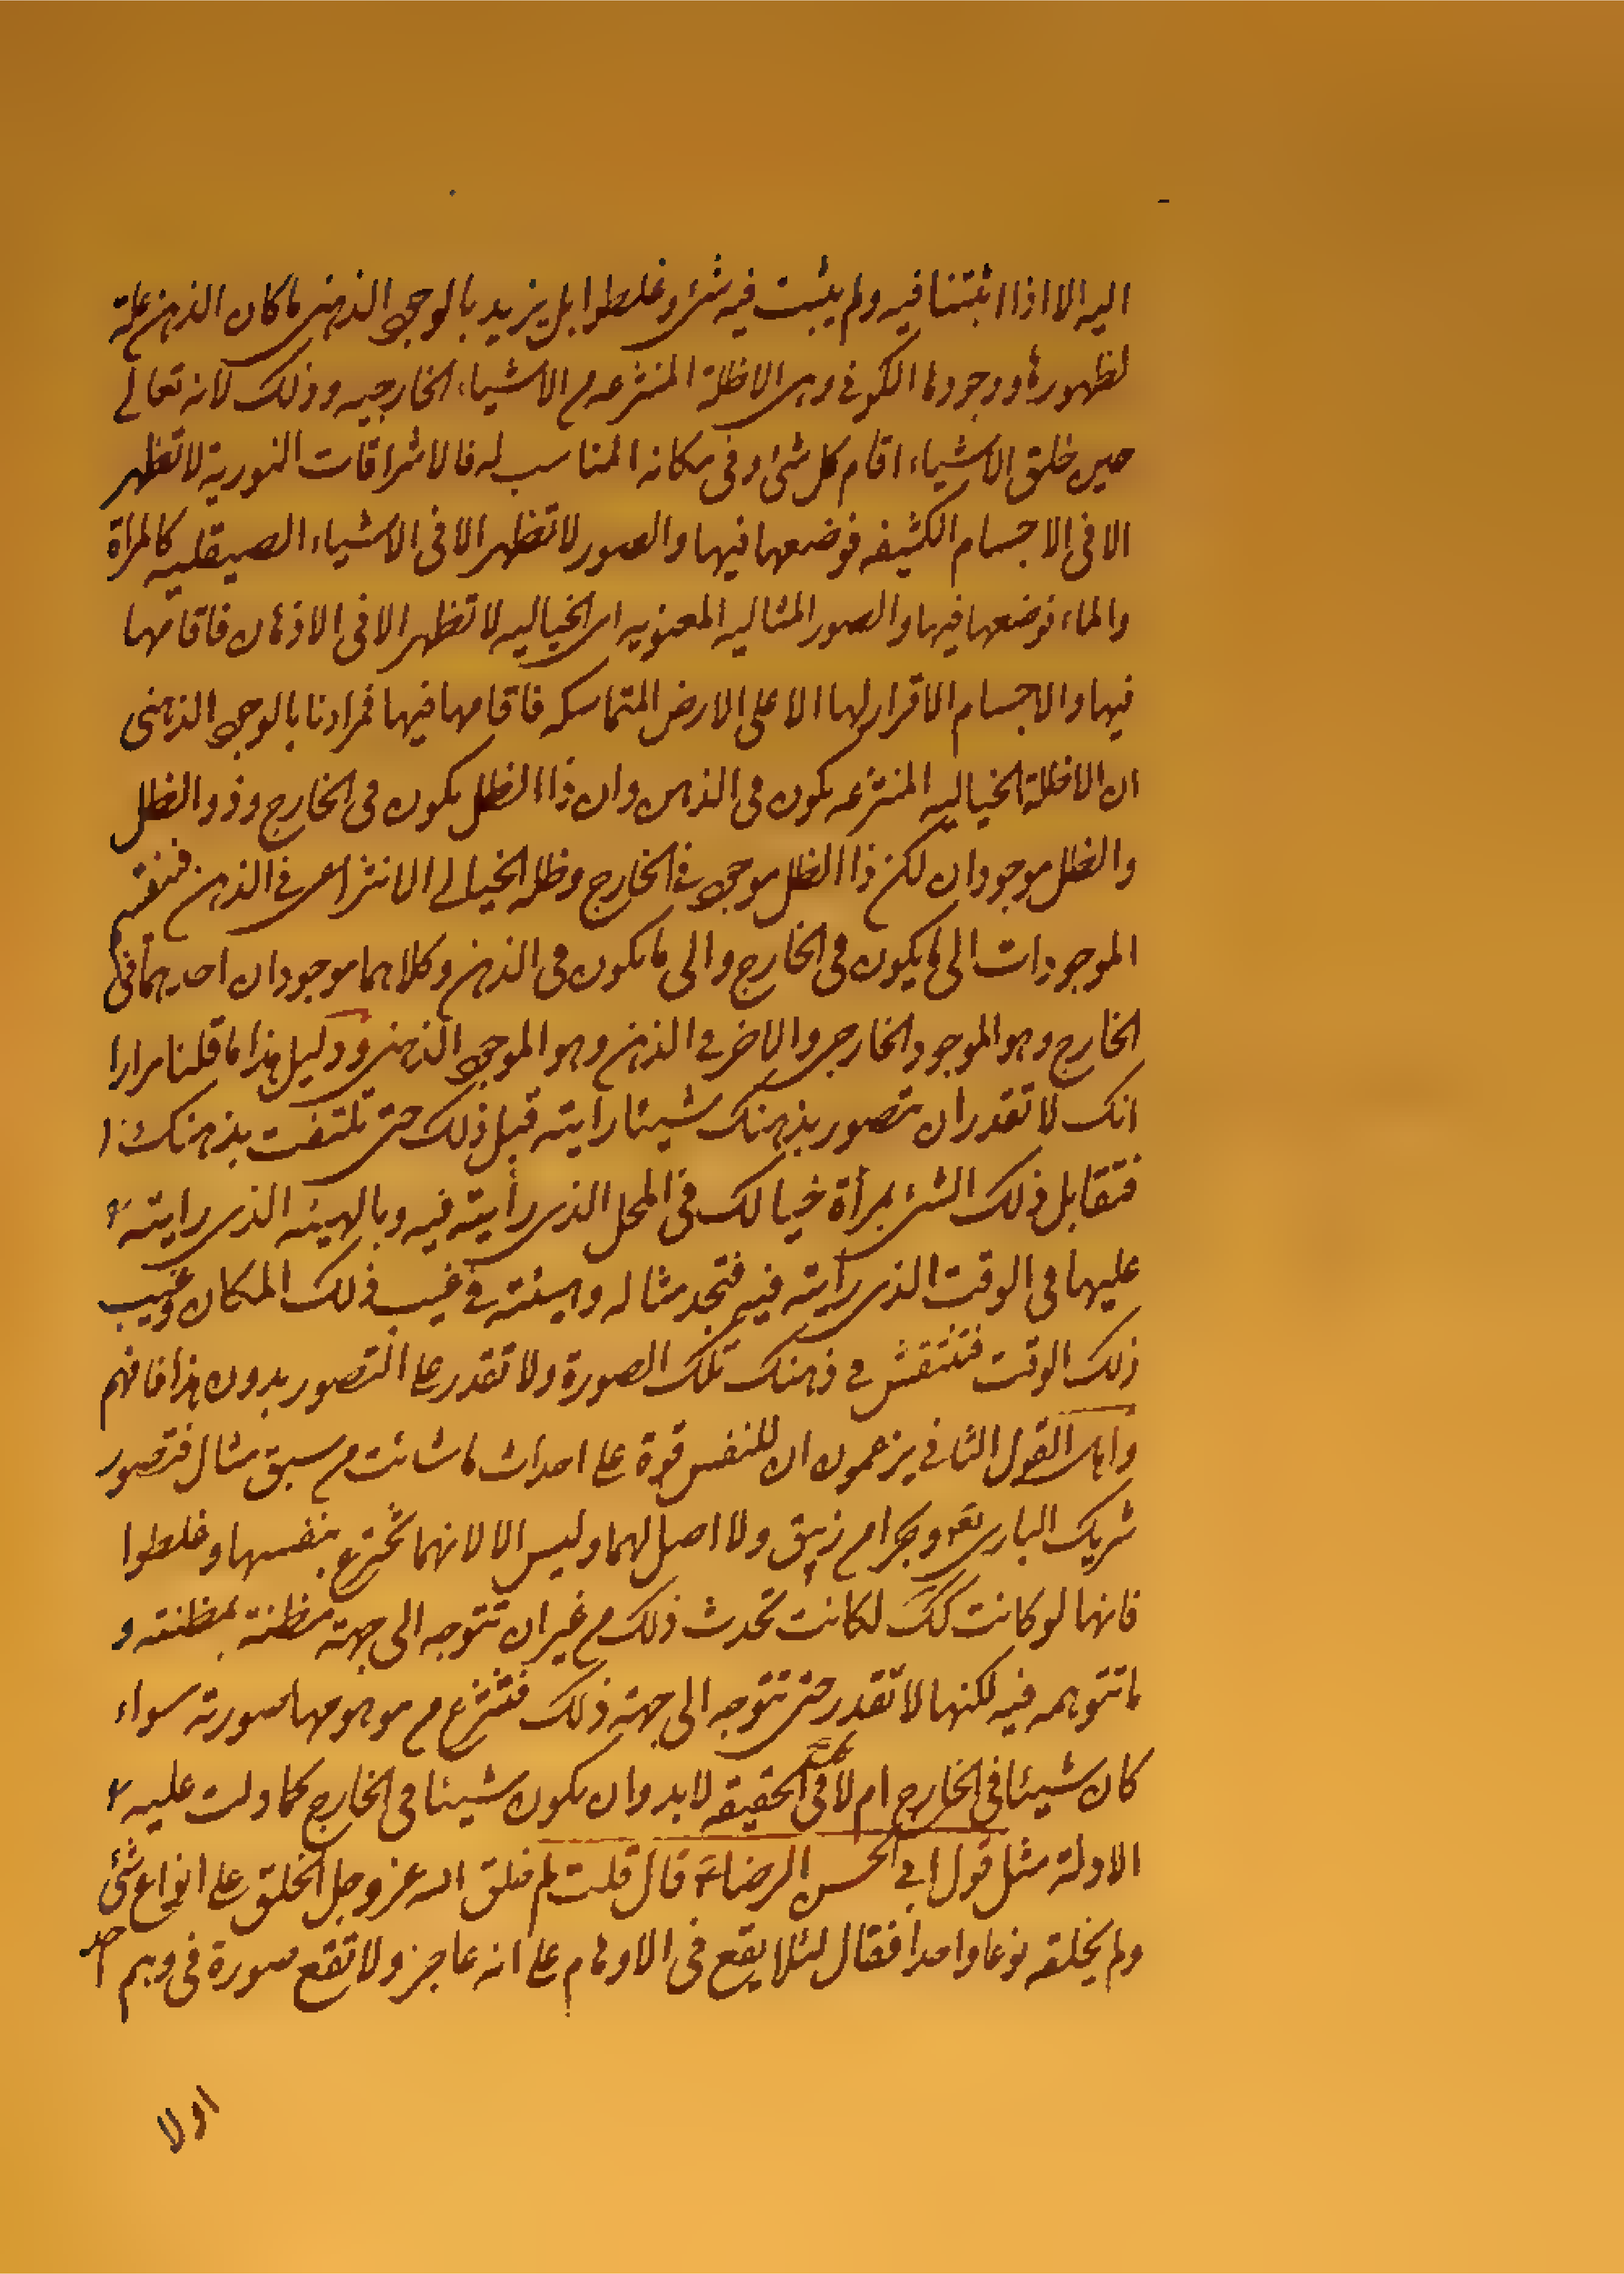 اليه الا اذا اثبتنا فيه ولم يثبت فيه شئ وغلطوا بل يزيد بالوجود الذهنى ما كان الذهن علة
لظهورها ووجودها الكونى وهى الاظلة المنتزعه من الاشياء الخارجيه وذلك لانه تعالى
حين خلق الاشياء اقام كل شئ فى مكانه المناسب له فالاشراقات النورية لا تظهر
الا فى الاجسام الكثيفه فوضعها فيها والصور لا تظهر الا فى الاشياء الصيقليه كالمرآة
والماء فوضعها فيها والصور المثاليه المعنويه اى الخياليه لا تظهر الا فى الاذهان فاقامها
فيها والاجسام لا قرار لها الا على الارض المتماسكه فاقامها فيها فمرادنا بالوجود الذهنى
ان الاظلة الخياليه المنتزعه يكون فى الذهن وان ذا الظل يكون فى الخارج وذو الظل
والظل موجودان لكن ذا الظل موجود فى الخارج وظله الخيالى الانتزاعى فى الذهن فتنقسم
الموجودات الى ما يكون فى الخارج والى ما يكون فى الذهن وكلاهما موجودان احدهما فى
الخارج وهو الموجود الخارجى والاخر فى الذهن وهو الموجود الذهنى ودليل هذا ما قلنا مرارا
انك لا تقدر ان تتصور بذهنك شيئا رايته قبل ذلك حتى تلتفت بذهنك
فتقابل ذلك الشئ بمرآة خيالك فى المحل الذى رأيته فيه وبالهيئه الذى رايته
عليها فى الوقت الذى رايته فيه فتجد مثاله وهيئته فى غيب ذلك المكان وغيب
ذلك الوقت فتنتقش فى ذهنك تلك الصورة ولا تقدر على التصور بدون هذا فافهم
واهل القول الثانى يزعمون ان للنفس قوة على احداث ما شائت من سبق مثال فتصور
شريك البارى تع وبحرا من زيبق ولا اصل لهما وليس الا لانهما تخترع بنفسها وغلطوا
فانها لو كانت كك لكانت تحدث ذلك من غير ان تتوجه الى جهة مظنة بمظنته و
ما تتوهمه فيه لكنها لا تقدر حتى تتوجه الى جهة ذلك فتنتزع من موهومها صورته سواء
كان شيئا فى الخارج ام لا فى الحقيقه لابد وان يكون شيئا فى الخارج كما دلت عليه
الادلة مثل قول ابى الحسن الرضا ع قال قلت لم خلق الله عز وجل الخلق على انواع شتى
ولم يخلقه نوعا واحدا فقال لئلا يقع فى الاوهام على انه عاجز ولا تقع صورة فى وهم احد
اولا